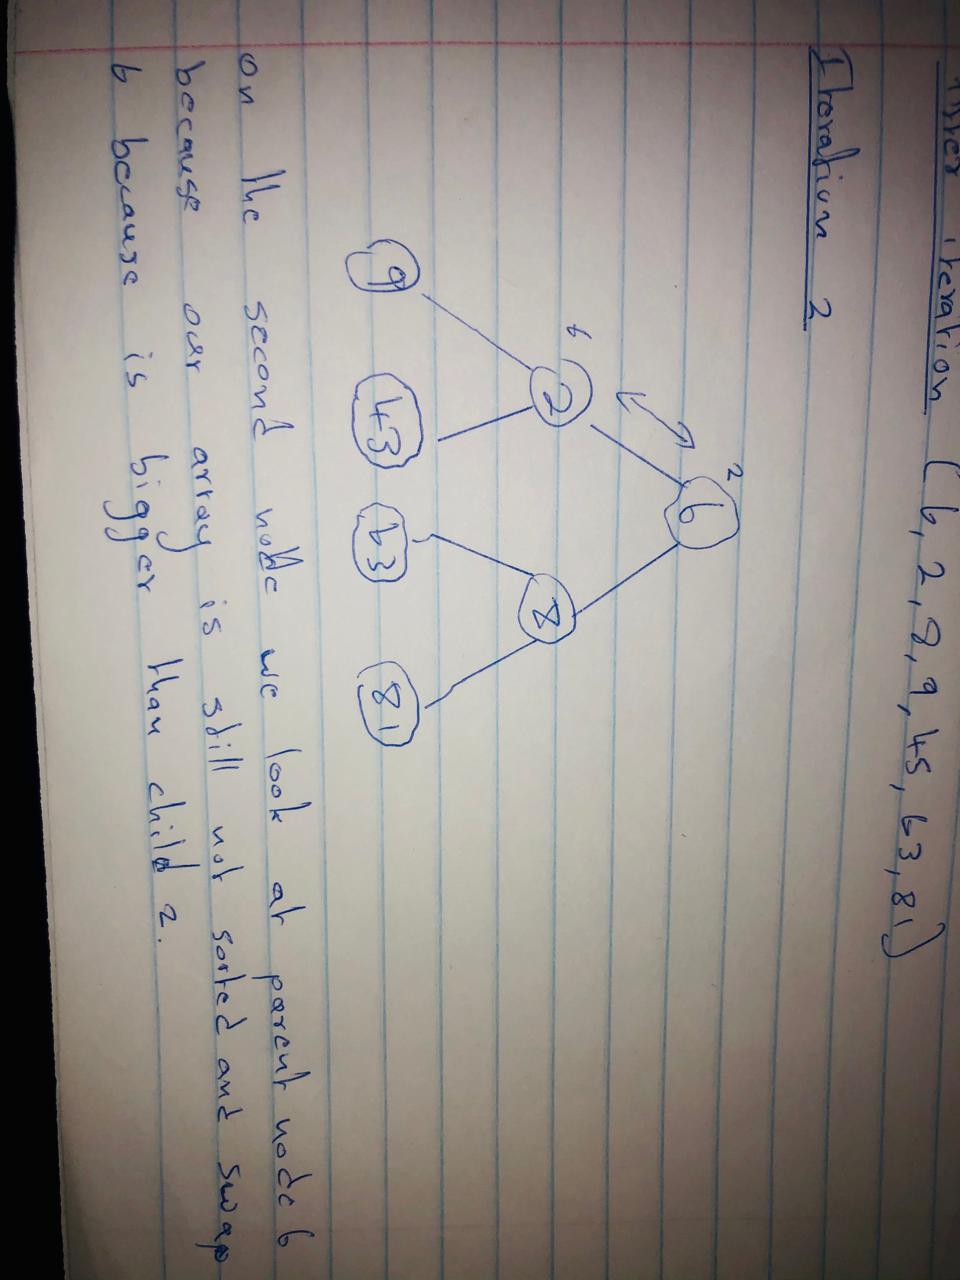 After iteration (6, 2, 8, 9, 45, 63, 81)
Iteration 2
2
6
6
2
8
9
43
63
81
on the second node we look at parent node 6
because our array is still not sorted and swap
6 because is bigger than child 2.